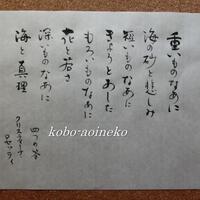 重いものなあに
海の砂と悲しみ
短いものなあに
きょうとあした
もろいものなあに
花と若さ
深いものなあに
海と真理
四つの答
クリスティナ
ロセッティ
kobo-aoineko